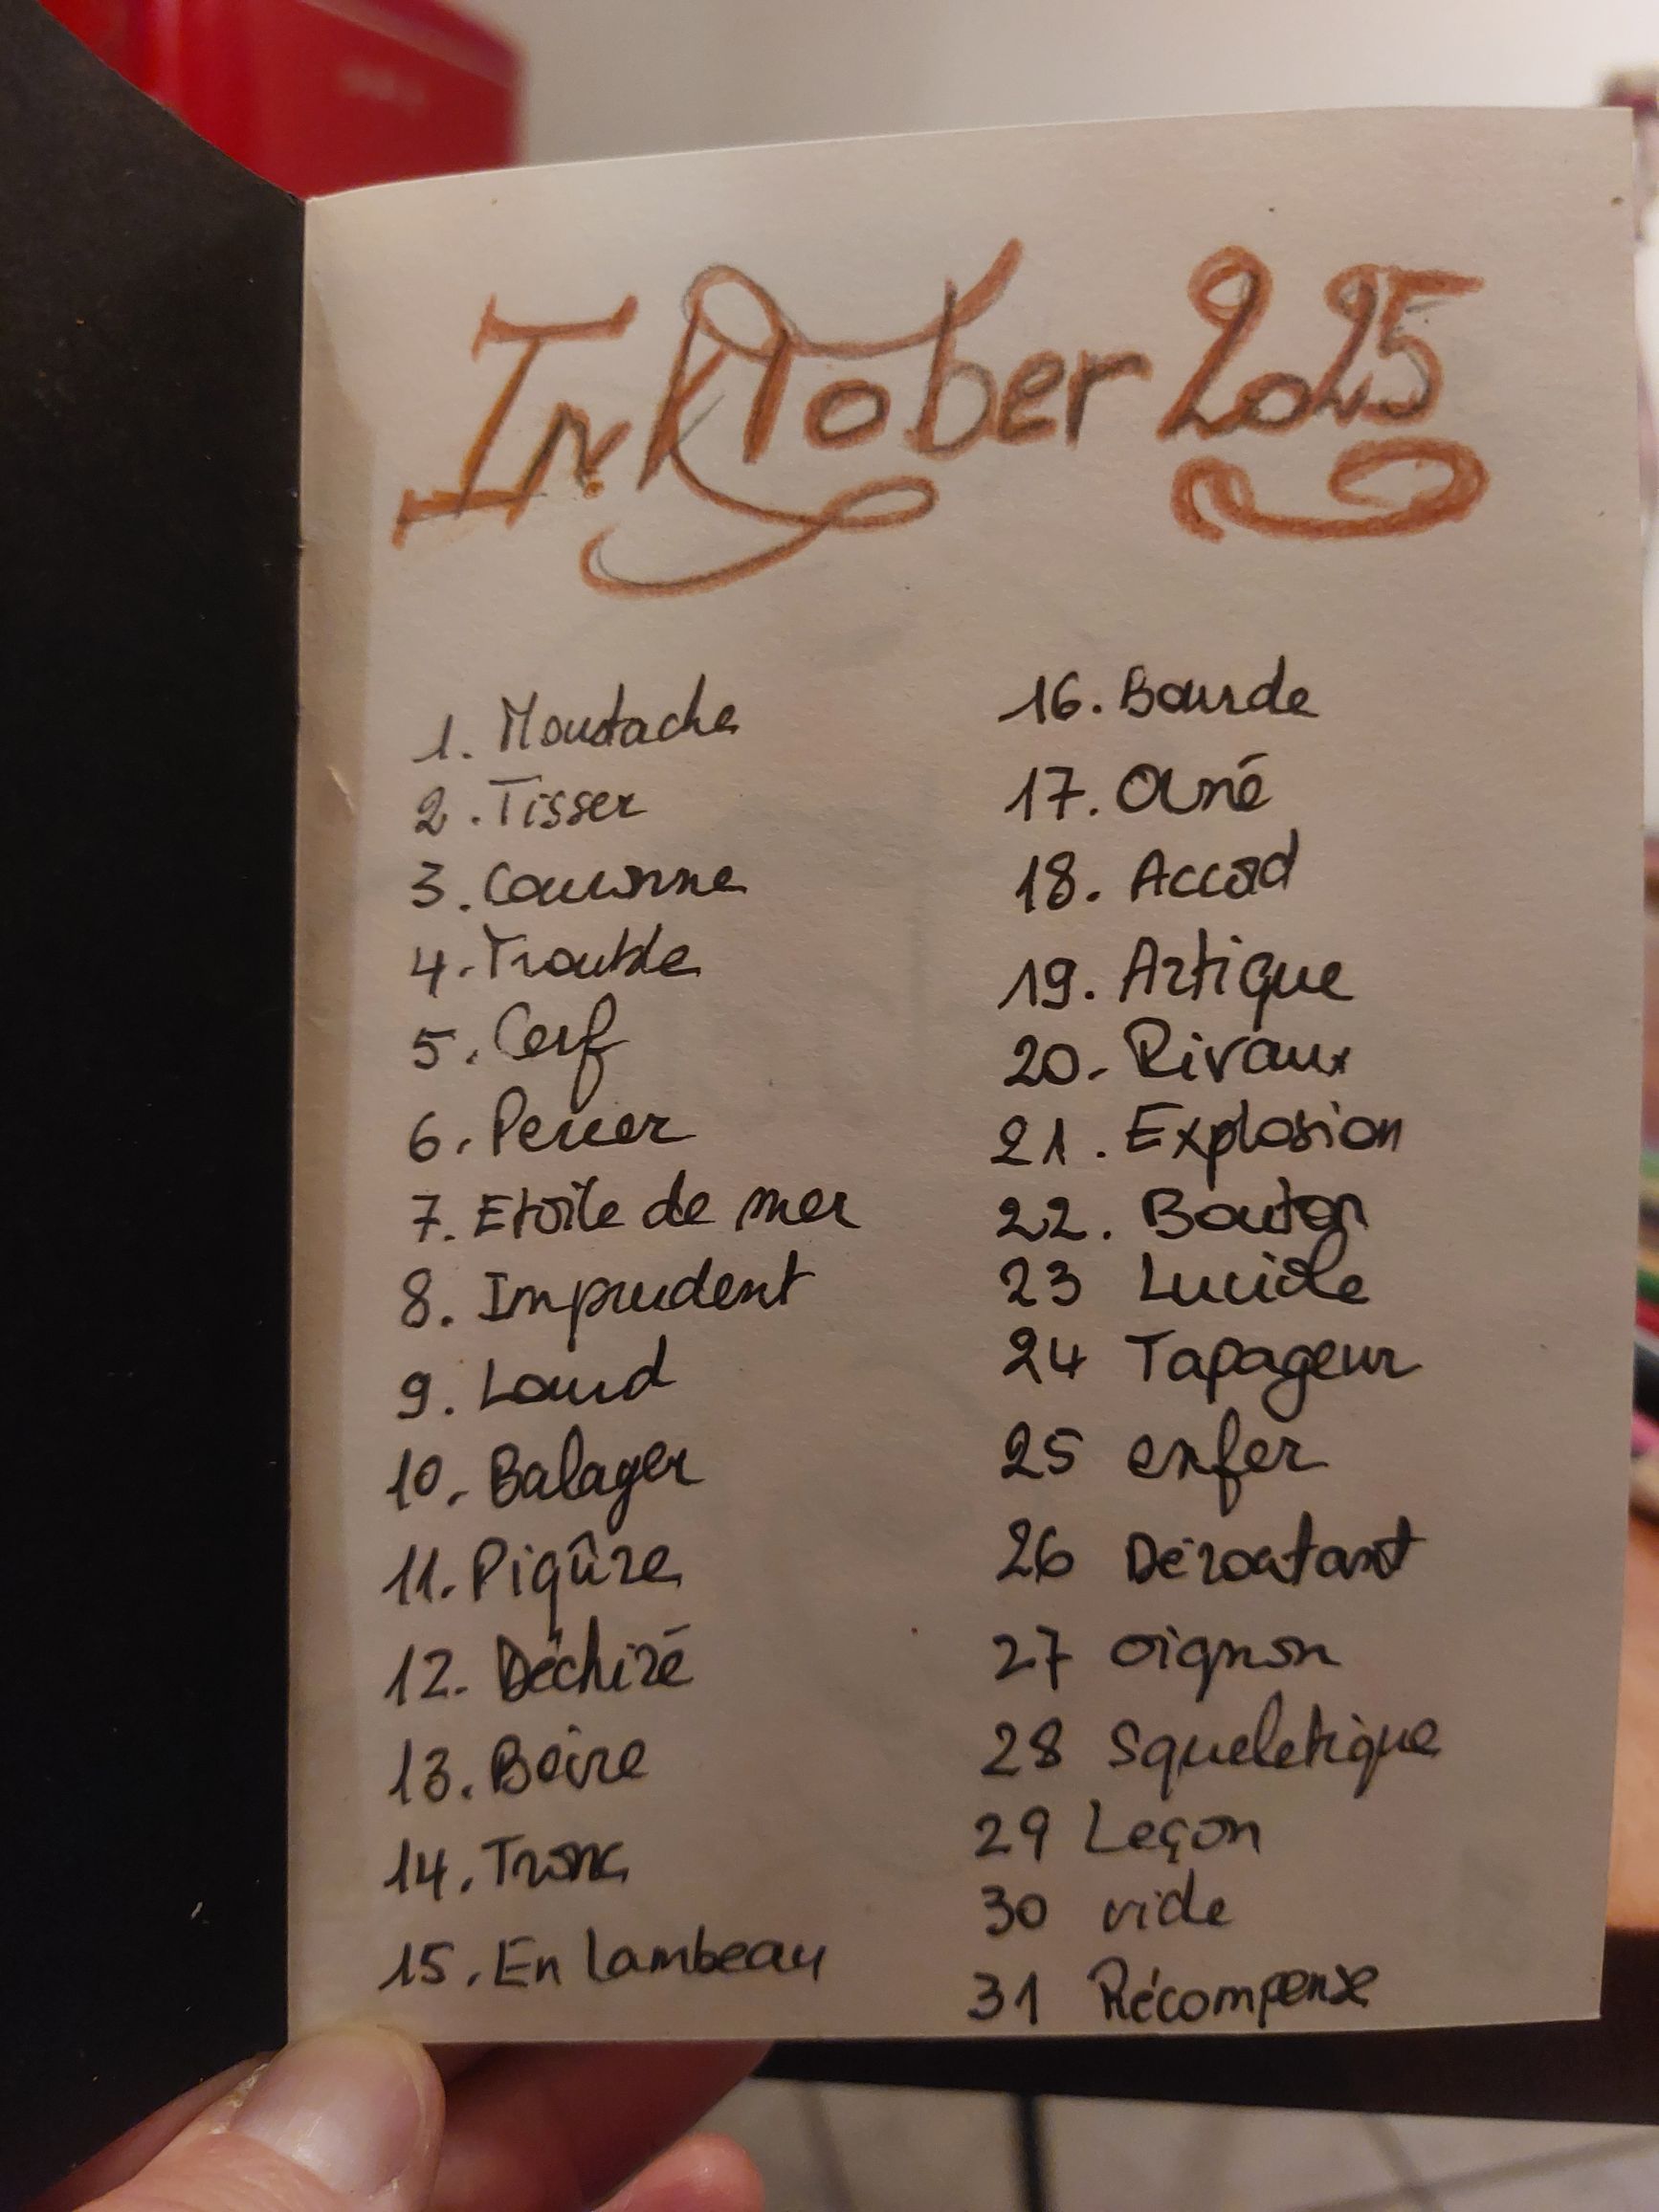 InkTober 2025
1. Moustache
2. Tisser
3. Couronne
4. Trouble
5. Cerf
6. Percer
7. Etoile de mer
8. Imprudent
9. Lourd
10. Balayer
11. Piqûre
12. Déchiré
13. Boire
14. Tronc
15. En lambeau
16. Bourde
17. Orné
18. Accord
19. Artique
20. Rivaux
21. Explosion
22. Bouton
23 Luciole
24 Tapageur
25 enfer
26 Déroutant
27 oignon
28 Squeletique
29 Leçon
30 vide
31 Récompense